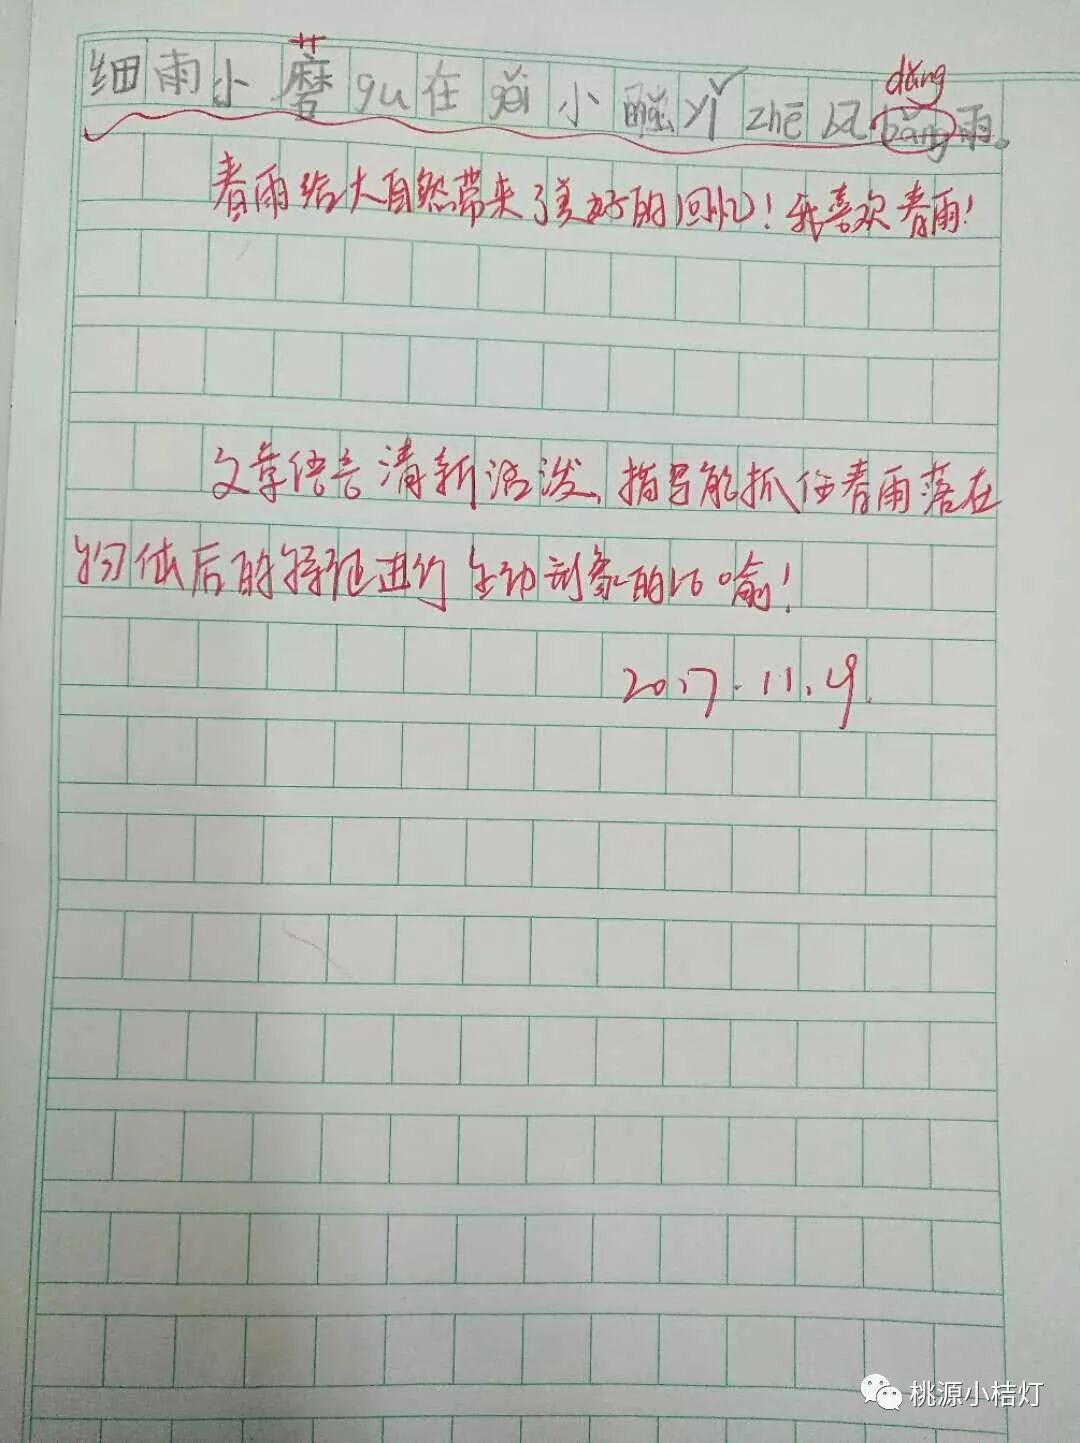 dǎng
细雨小蘑gu在gěi小蚂yǐ zhē风bǎng雨。
春雨给大自然带来了美好的回忆!我喜欢春雨!
文章语言清新活泼、描写能抓住春雨落在
物体后的特征进行生动形象的比喻!
2017.11.9.
桃源小桔灯